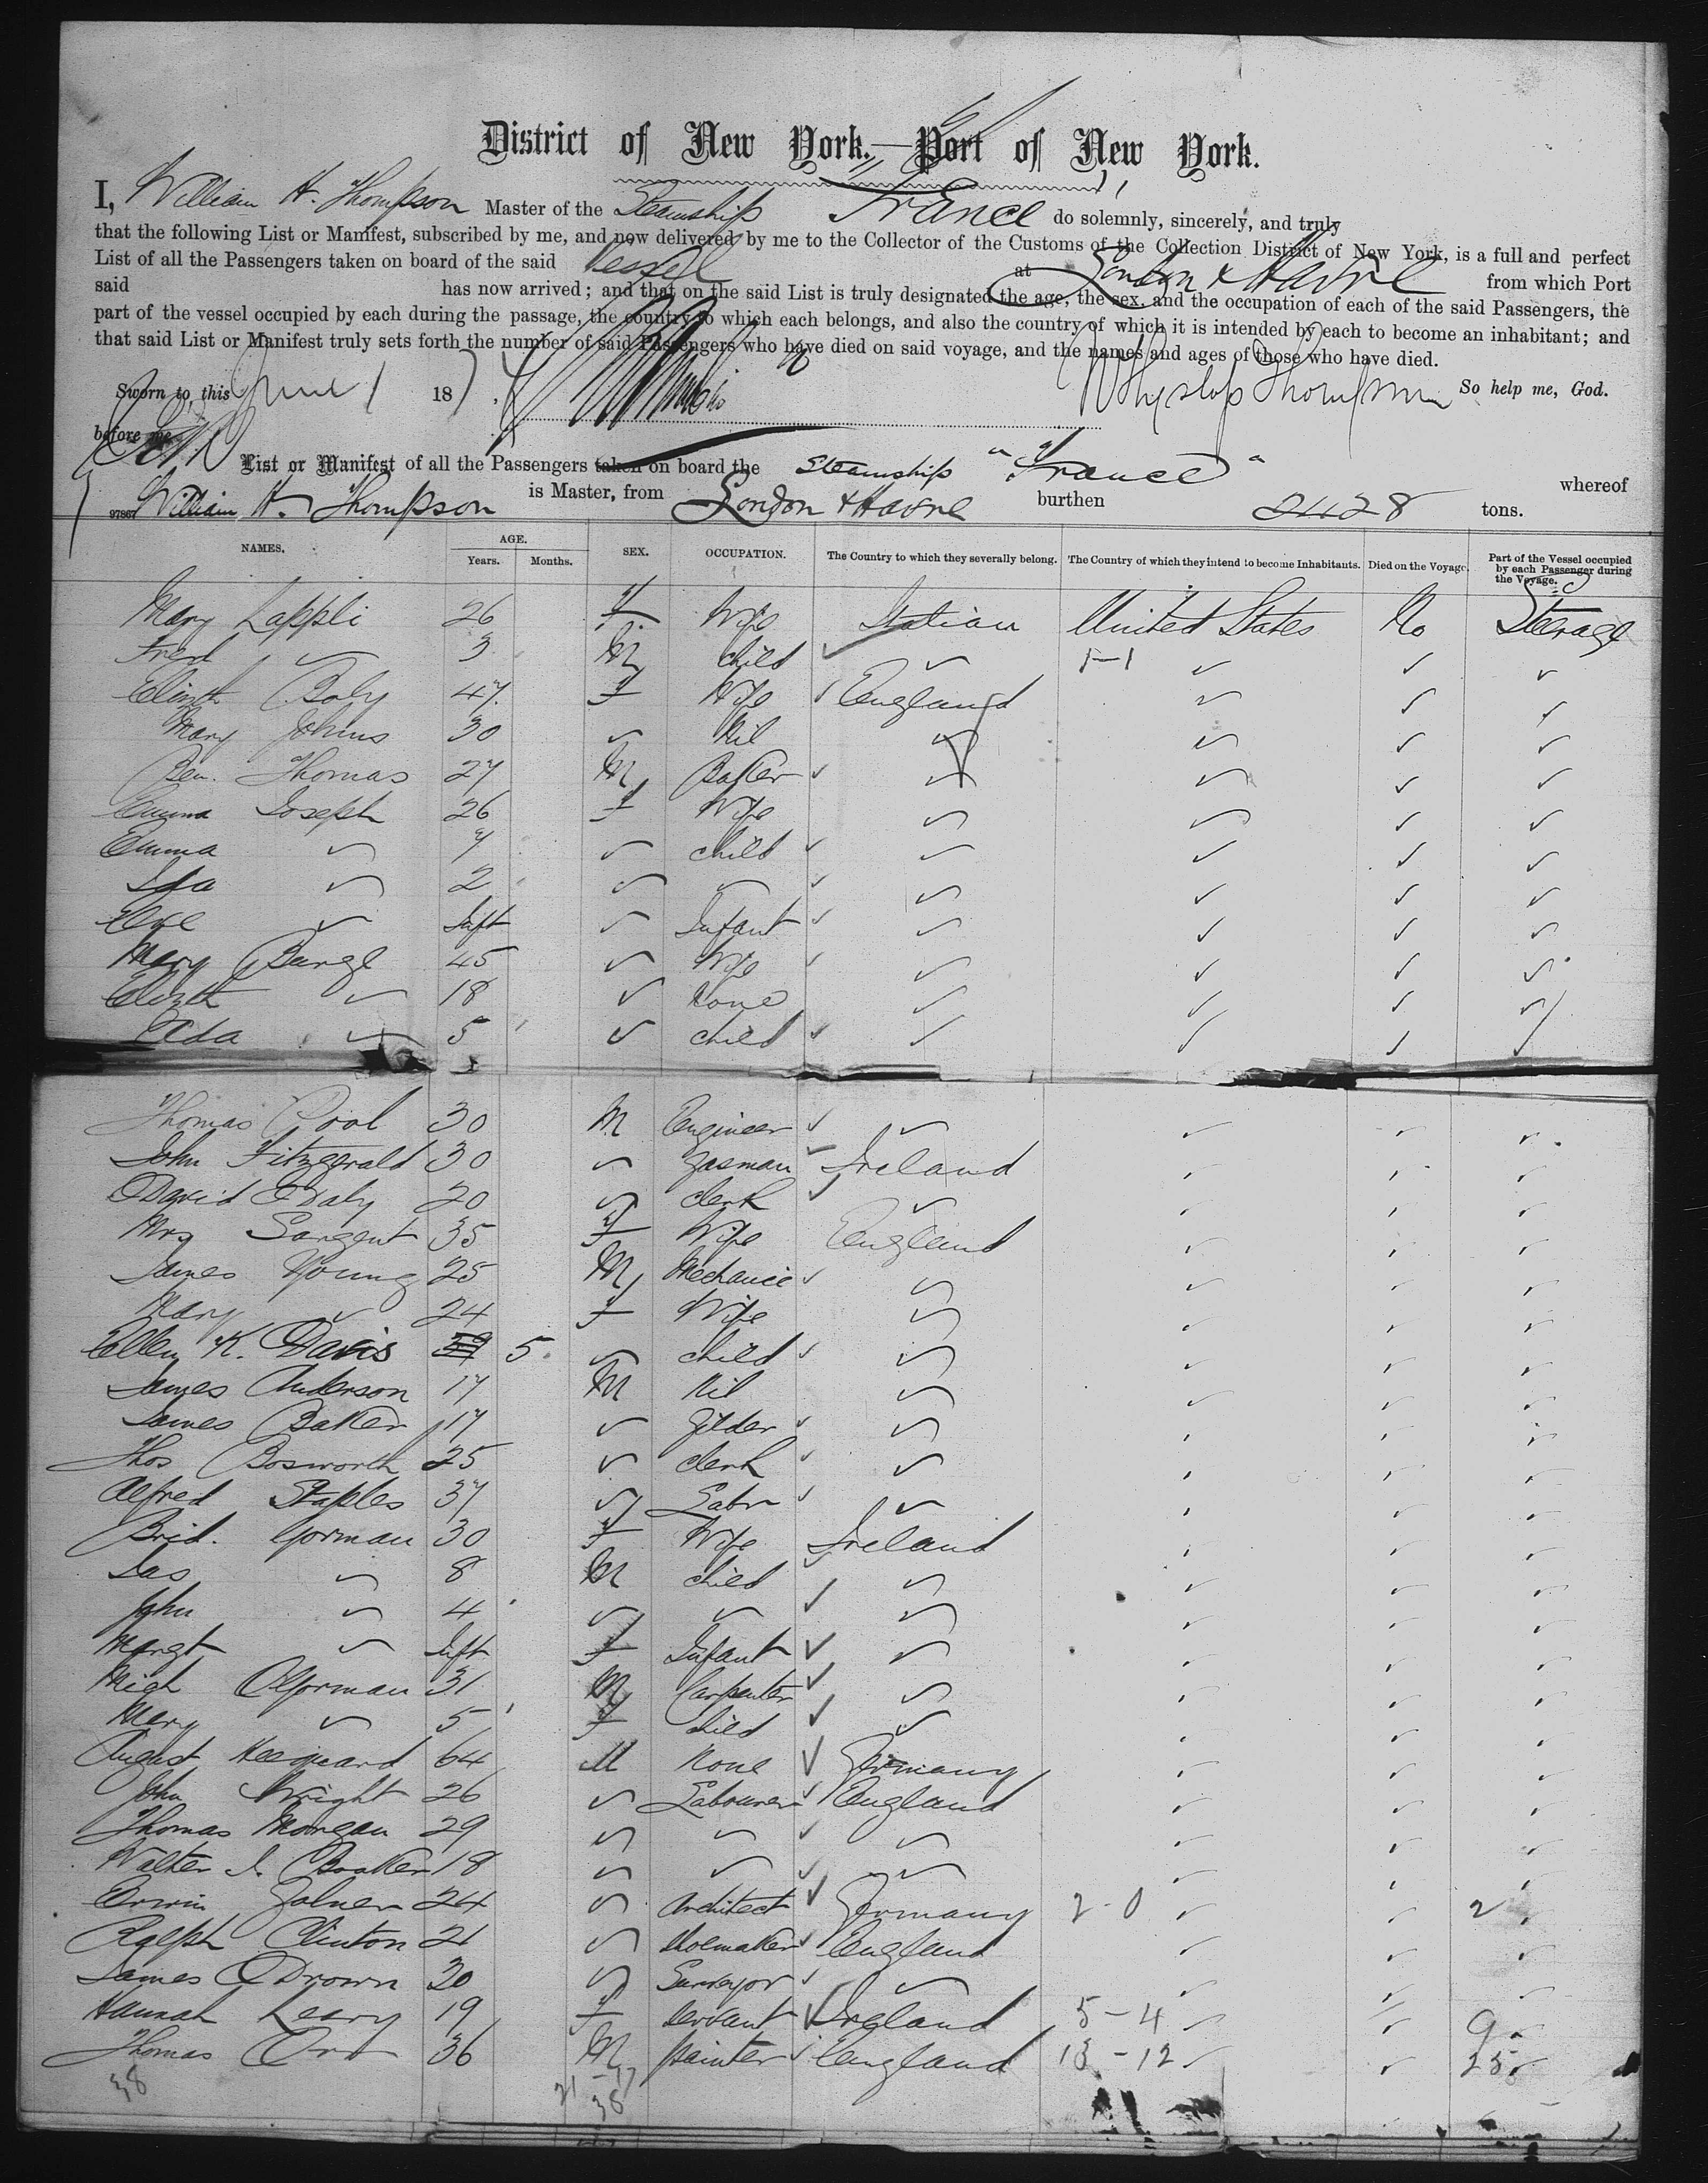 District of New York.—Port of New York.
I, William H. Thompson Master of the Steamship France do solemnly, sincerely, and truly
that the following List or Manifest, subscribed by me, and now delivered by me to the Collector of the Customs of the Collection District of New York, is a full and perfect
List of all the Passengers taken on board of the said Vessel at London & Havre from which Port
said has now arrived; and that on the said List is truly designated the age, the sex, and the occupation of each of the said Passengers, the
part of the vessel occupied by each during the passage, the country to which each belongs, and also the country of which it is intended by each to become an inhabitant; and
that said List or Manifest truly sets forth the number of said Passengers who have died on said voyage, and the names and ages of those who have died.
Sworn to, this June 1 187 So help me, God.
before me
List or Manifest of all the Passengers taken on board the Steamship "France" whereof
97867 William H. Thompson is Master, from London & Havre burthen 2428 tons.
NAMES. AGE. Years. Months. SEX. OCCUPATION. The Country to which they severally belong. The Country of which they intend to become Inhabitants. Died on the Voyage. Part of the Vessel occupied by each Passenger during the Voyage.
Mary Lappli 26 F. Wife Italian United States No Steerage
Fred ✓ 3 M child ✓ ✓ 1-1 ✓ ✓ ✓
Elizth Boly 47 F Wife ✓ England ✓ ✓ ✓
Mary Johns 30 ✓ Nil ✓ ✓ ✓ ✓
Ben. Thomas 27 M Baker ✓ ✓ ✓ ✓ ✓
Emma Joseph 26 F Wife ✓ ✓ ✓ ✓
Emma ✓ 7 ✓ child ✓ ✓ ✓ ✓ ✓
Ida ✓ 2 ✓ ✓ ✓ ✓ ✓ ✓ ✓
Eve ✓ Inft ✓ Infant ✓ ✓ ✓ ✓ ✓
Mary Burge 45 ✓ Wife ✓ ✓ ✓ ✓ ✓
Elizth ✓ 18 ✓ None ✓ ✓ ✓ ✓
Ada ✓ 5 ✓ child ✓ ✓ ✓ ✓ ✓
Thomas Pool 30 M Engineer ✓ ✓ ✓ ✓ ✓
John Fitzgerald 30 ✓ gasman ✓ Ireland ✓ ✓ ✓
David Daly 20 ✓ clerk ✓ ✓ ✓ ✓ ✓
Mrs Sargent 35 F Wife England ✓ ✓ ✓
James Young 25 M Mechanic ✓ ✓ ✓ ✓ ✓
Mary ✓ 24 F Wife ✓ ✓ ✓ ✓
Ellen K. Davis 5 ✓ child ✓ ✓ ✓ ✓ ✓
James Anderson 17 M Nil ✓ ✓ ✓ ✓
James Baker 17 ✓ gilder ✓ ✓ ✓ ✓ ✓
Thos Bosworth 25 ✓ clerk ✓ ✓ ✓ ✓ ✓
Alfred Staples 37 ✓ Labr ✓ ✓ ✓ ✓ ✓
Brid. Gorman 30 F Wife Ireland ✓ ✓ ✓
Jas ✓ 8 M child ✓ ✓ ✓ ✓ ✓
John ✓ 4 ✓ ✓ ✓ ✓ ✓ ✓ ✓
Margt ✓ Inft F Infant ✓ ✓ ✓ ✓ ✓
Mich OGorman 31 M Carpenter ✓ ✓ ✓ ✓ ✓
Mary ✓ 5 F child ✓ ✓ ✓ ✓ ✓
August 64 M None ✓ Germany ✓ ✓ ✓
John Wright 26 ✓ Labourer ✓ England ✓ ✓ ✓
Thomas Morgan 29 ✓ ✓ ✓ ✓ ✓ ✓ ✓
Walter J. Brooker 18 ✓ ✓ ✓ ✓ ✓ ✓ ✓
Erwin Zolner 24 ✓ Architect ✓ Germany 2-0 ✓ ✓ 2 ✓
Ralph Clinton 21 ✓ Shoemaker ✓ England ✓ ✓ ✓
James Drown 20 ✓ Surveyor ✓ ✓ ✓ ✓ ✓
Hannah Leary 19 F servant ✓ Ireland 5-4 ✓ ✓ 9 ✓
Thomas Orr 36 M painter ✓ England 13-12 ✓ ✓ 25 ✓
38 21-17
38